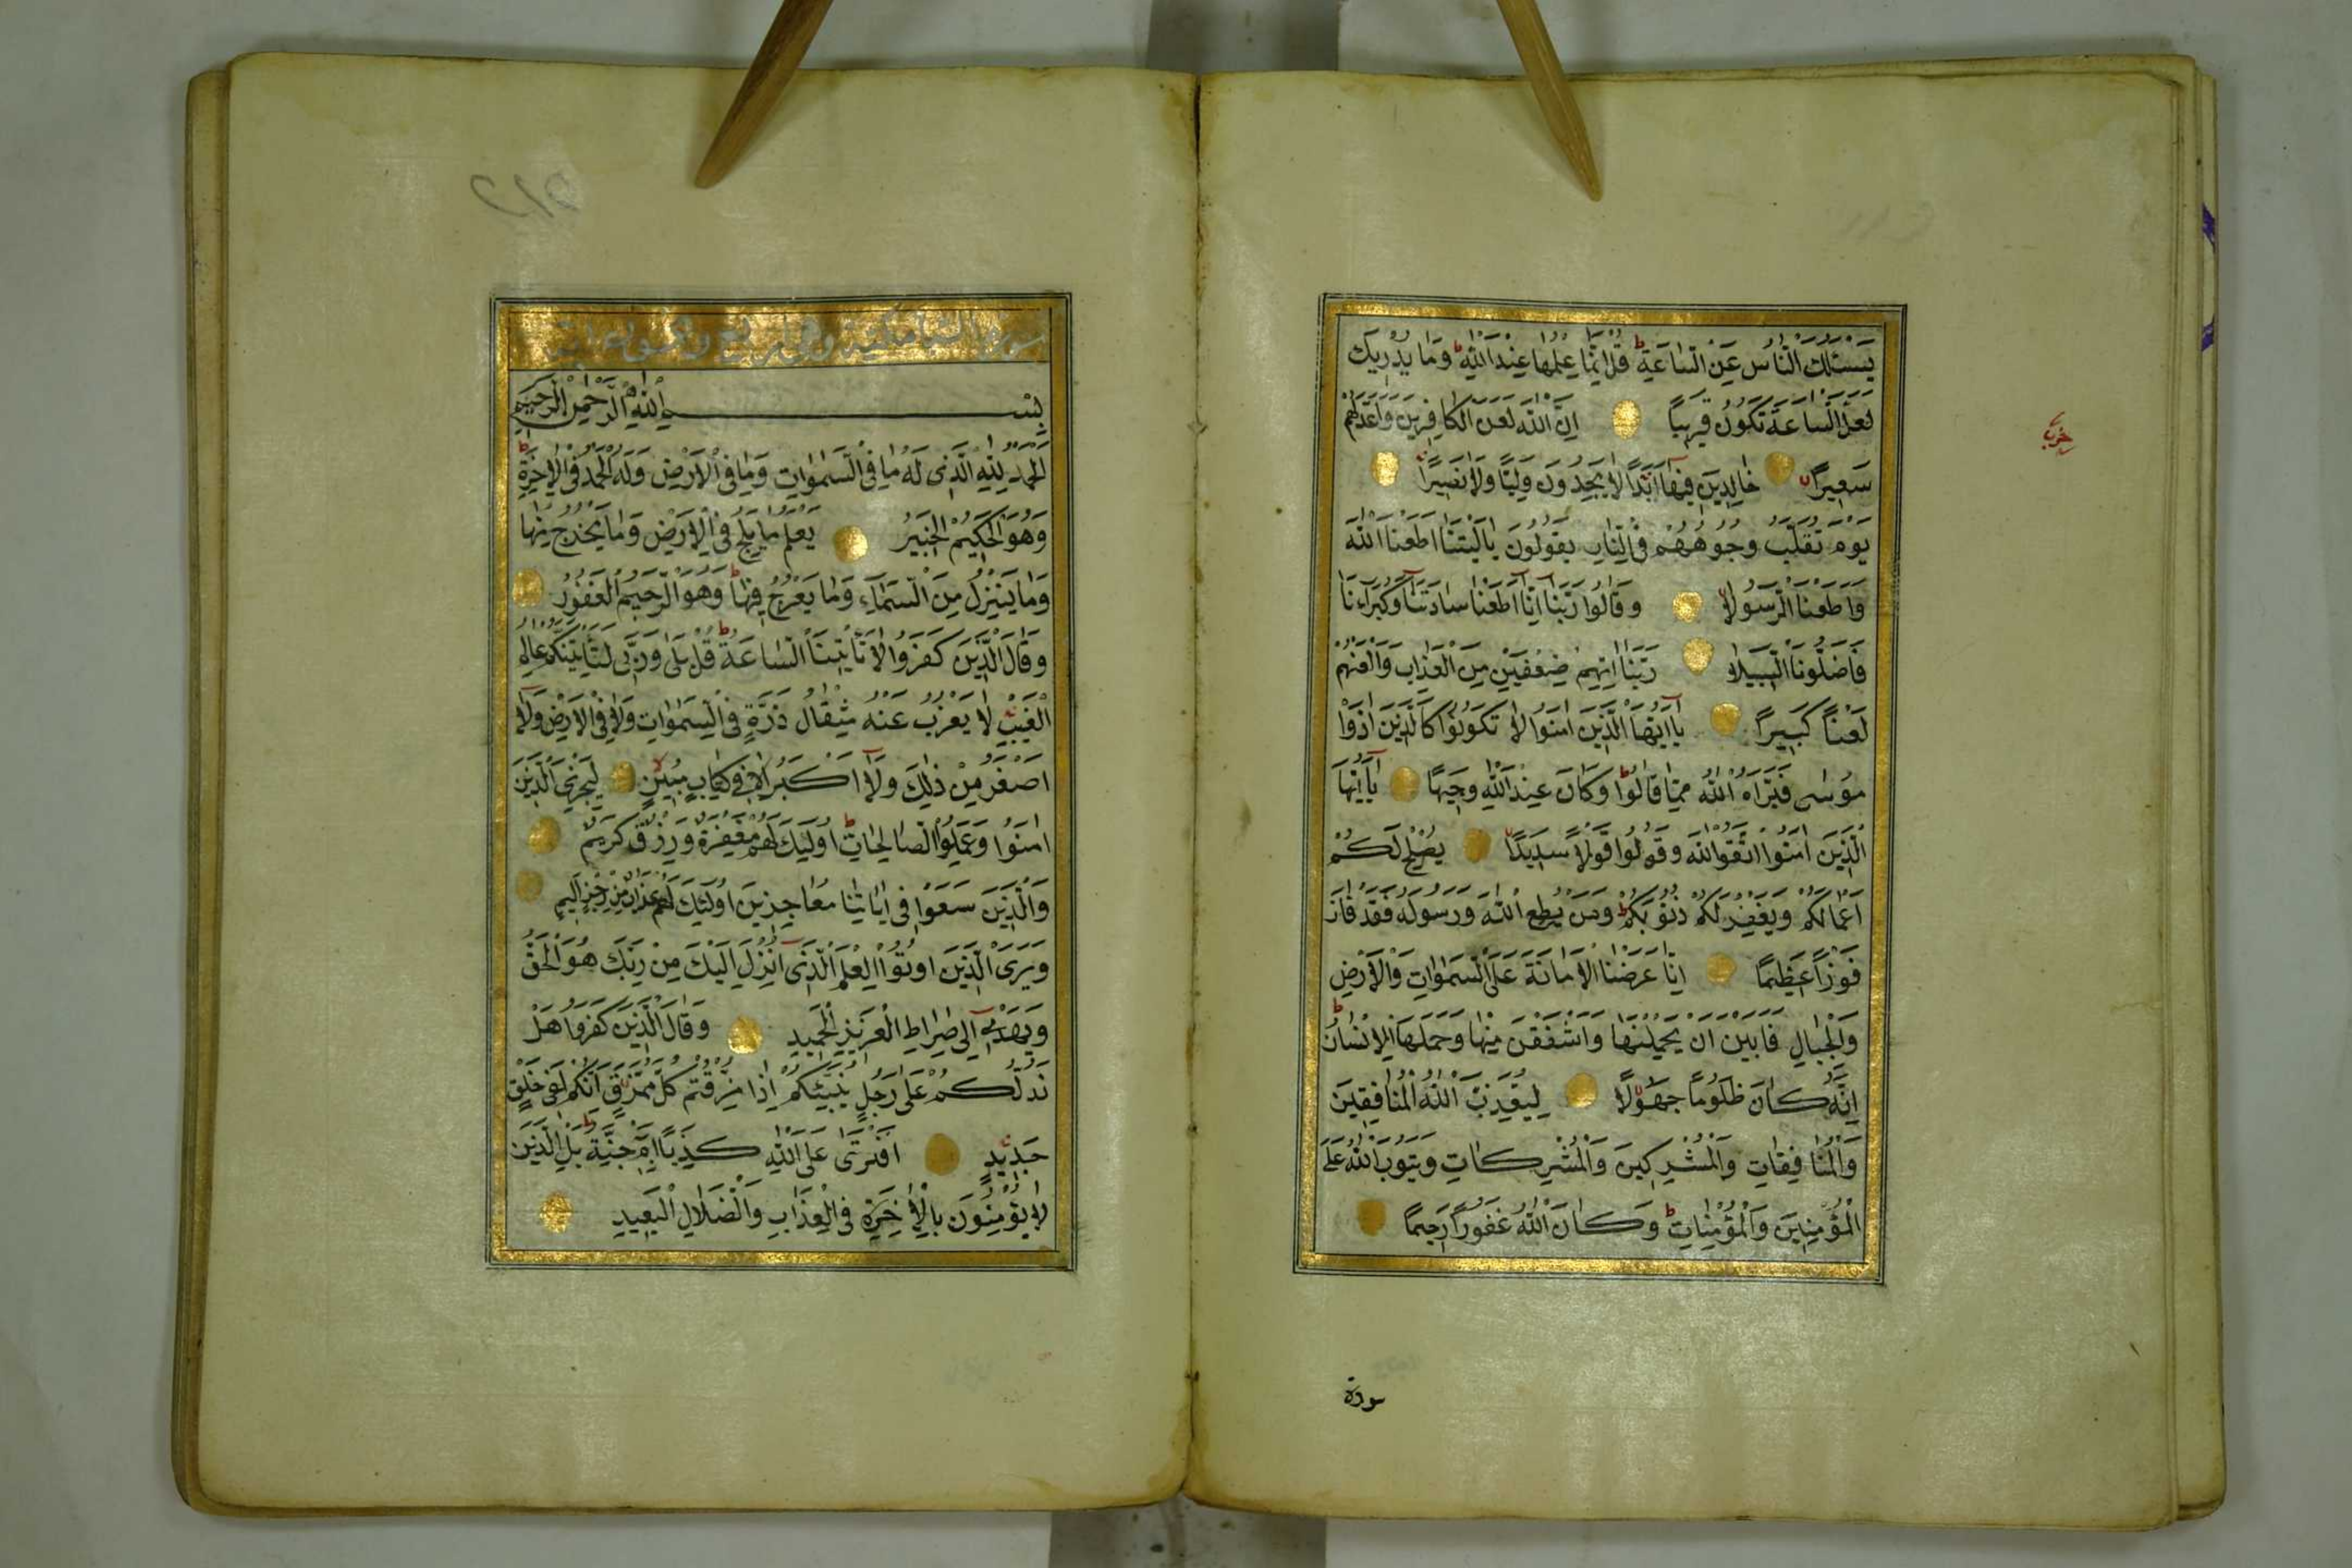 يَسْئَلُكَ النَّاسُ عَنِ السَّاعَةِ ط قُلْ اِنَّمَا عِلْمُهَا عِنْدَ اللّٰهِ ط وَمَا يُدْرِيكَ
لَعَلَّ السَّاعَةَ تَكُونُ قَرِيبًا اِنَّ اللّٰهَ لَعَنَ الْكَافِرِينَ وَاَعَدَّ لَهُمْ
سَعِيرًا خَالِدِينَ فِيهَا اَبَدًا لَا يَجِدُونَ وَلِيًّا وَلَا نَصِيرًا
يَوْمَ تُقَلَّبُ وُجُوهُهُمْ فِى النَّارِ يَقُولُونَ يَا لَيْتَنَا اَطَعْنَا اللّٰهَ
وَاَطَعْنَا الرَّسُولَا وَقَالُوا رَبَّنَا اِنَّا اَطَعْنَا سَادَتَنَا وَكُبَرَاءَنَا
فَاَضَلُّونَا السَّبِيلَا رَبَّنَا اٰتِهِمْ ضِعْفَيْنِ مِنَ الْعَذَابِ وَالْعَنْهُمْ
لَعْنًا كَبِيرًا يَا اَيُّهَا الَّذِينَ اٰمَنُوا لَا تَكُونُوا كَالَّذِينَ اٰذَوْا
مُوسٰى فَبَرَّاَهُ اللّٰهُ مِمَّا قَالُوا ط وَكَانَ عِنْدَ اللّٰهِ وَجِيهًا يَا اَيُّهَا
الَّذِينَ اٰمَنُوا اتَّقُوا اللّٰهَ وَقُولُوا قَوْلًا سَدِيدًا يُصْلِحْ لَكُمْ
اَعْمَالَكُمْ وَيَغْفِرْ لَكُمْ ذُنُوبَكُمْ ط وَمَنْ يُطِعِ اللّٰهَ وَرَسُولَهُ فَقَدْ فَازَ
فَوْزًا عَظِيمًا اِنَّا عَرَضْنَا الْاَمَانَةَ عَلَى السَّمٰوَاتِ وَالْاَرْضِ
وَالْجِبَالِ فَاَبَيْنَ اَنْ يَحْمِلْنَهَا وَاَشْفَقْنَ مِنْهَا وَحَمَلَهَا الْاِنْسَانُ ط
اِنَّهُ كَانَ ظَلُومًا جَهُولًا لِيُعَذِّبَ اللّٰهُ الْمُنَافِقِينَ
وَالْمُنَافِقَاتِ وَالْمُشْرِكِينَ وَالْمُشْرِكَاتِ وَيَتُوبَ اللّٰهُ عَلَى
الْمُؤْمِنِينَ وَالْمُؤْمِنَاتِ ط وَكَانَ اللّٰهُ غَفُورًا رَحِيمًا
سورة
حزب
سورة السبا مكية وهى اربع وخمسون اية
بِسْمِ اللّٰهِ الرَّحْمٰنِ الرَّحِيمِ
اَلْحَمْدُ لِلّٰهِ الَّذِى لَهُ مَا فِى السَّمٰوَاتِ وَمَا فِى الْاَرْضِ وَلَهُ الْحَمْدُ فِى الْاٰخِرَةِ ط
وَهُوَ الْحَكِيمُ الْخَبِيرُ يَعْلَمُ مَا يَلِجُ فِى الْاَرْضِ وَمَا يَخْرُجُ مِنْهَا
وَمَا يَنْزِلُ مِنَ السَّمَاءِ وَمَا يَعْرُجُ فِيهَا ط وَهُوَ الرَّحِيمُ الْغَفُورُ
وَقَالَ الَّذِينَ كَفَرُوا لَا تَأْتِينَا السَّاعَةُ ط قُلْ بَلٰى وَرَبِّى لَتَأْتِيَنَّكُمْ عَالِمِ
الْغَيْبِ لَا يَعْزُبُ عَنْهُ مِثْقَالُ ذَرَّةٍ فِى السَّمٰوَاتِ وَلَا فِى الْاَرْضِ وَلَا
اَصْغَرُ مِنْ ذٰلِكَ وَلَا اَكْبَرُ اِلَّا فِى كِتَابٍ مُبِينٍ لِيَجْزِىَ الَّذِينَ
اٰمَنُوا وَعَمِلُوا الصَّالِحَاتِ ط اُولٰئِكَ لَهُمْ مَغْفِرَةٌ وَرِزْقٌ كَرِيمٌ
وَالَّذِينَ سَعَوْا فِى اٰيَاتِنَا مُعَاجِزِينَ اُولٰئِكَ لَهُمْ عَذَابٌ مِنْ رِجْزٍ اَلِيمٍ
وَيَرَى الَّذِينَ اُوتُوا الْعِلْمَ الَّذِى اُنْزِلَ اِلَيْكَ مِنْ رَبِّكَ هُوَ الْحَقَّ
وَيَهْدِى اِلٰى صِرَاطِ الْعَزِيزِ الْحَمِيدِ وَقَالَ الَّذِينَ كَفَرُوا هَلْ
نَدُلُّكُمْ عَلٰى رَجُلٍ يُنَبِّئُكُمْ اِذَا مُزِّقْتُمْ كُلَّ مُمَزَّقٍ اِنَّكُمْ لَفِى خَلْقٍ
جَدِيدٍ اَفْتَرٰى عَلَى اللّٰهِ كَذِبًا اَمْ بِهِ جِنَّةٌ ط بَلِ الَّذِينَ
لَا يُؤْمِنُونَ بِالْاٰخِرَةِ فِى الْعَذَابِ وَالضَّلَالِ الْبَعِيدِ